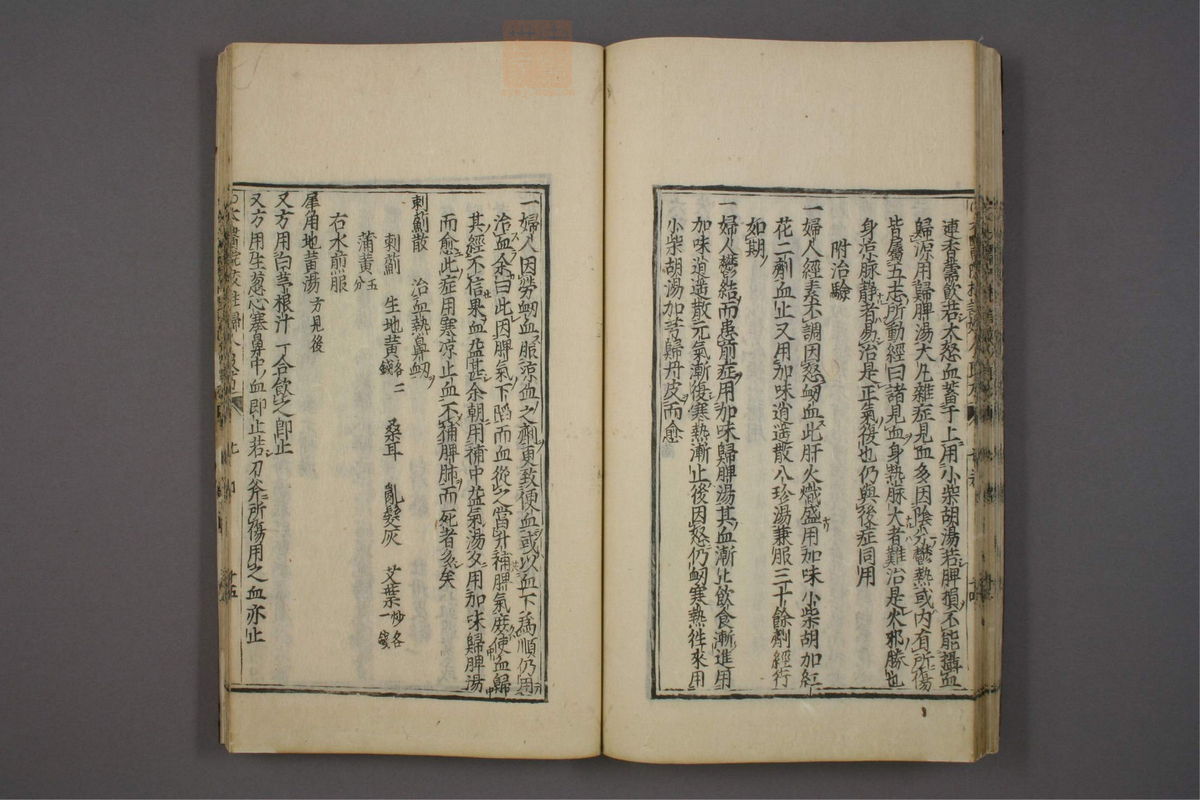 連香薷飲若大怒血蓄于上用小柴胡湯若脾損不能攝血
歸源用歸脾湯大凡雜症見血多因陰分鬱熱或內有所傷
皆屬五志所動經曰諸見血身熱脉大者難治是火邪勝也
身凉脉静者易治是正氣復也仍與後症同用
附治驗
一婦人經素不調因怒衂血此肝火熾盛用加味小柴胡加紅
花二劑血止又用加味逍遥散八珍湯兼服三十餘劑經行
如期
一婦人鬱結而患前症用加味歸脾湯其血漸止飲食漸進用
加味逍遥散元氣漸復寒熱漸止後因怒仍衂寒熱徃來用
小柴胡湯加芎歸丹皮而愈
一婦人因勞衂血服凉血之劑更致便血或以血下爲順仍用
治血余曰此因脾氣下䧟而血從之當升補脾氣庻使血歸
其經不信果血益甚余朝用補中益氣湯夕用加味歸脾湯
而愈此症用寒凉止血不補脾肺而死者多矣
刺薊散 治血熱鼻衂
刺薊 生地黄各二錢 桑耳 亂髮灰 艾葉炒各一錢
蒲黄五分
右水煎服
犀角地黄湯方見後
又方用白茅根汁一合飲之即止
又方用生葱心塞鼻中血即止若刃斧所傷用之血亦止